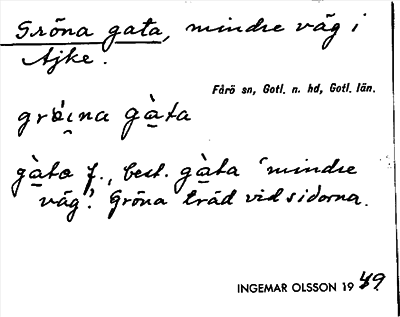 Gröna gata, mindre väg i
Ajke.
Fårö sn, Gotl. n. hd, Gotl. län.
gròi̯na gàta
gàta f., best. gàta 'mindre
väg'. Gröna träd vid sidorna.
INGEMAR OLSSON 1949